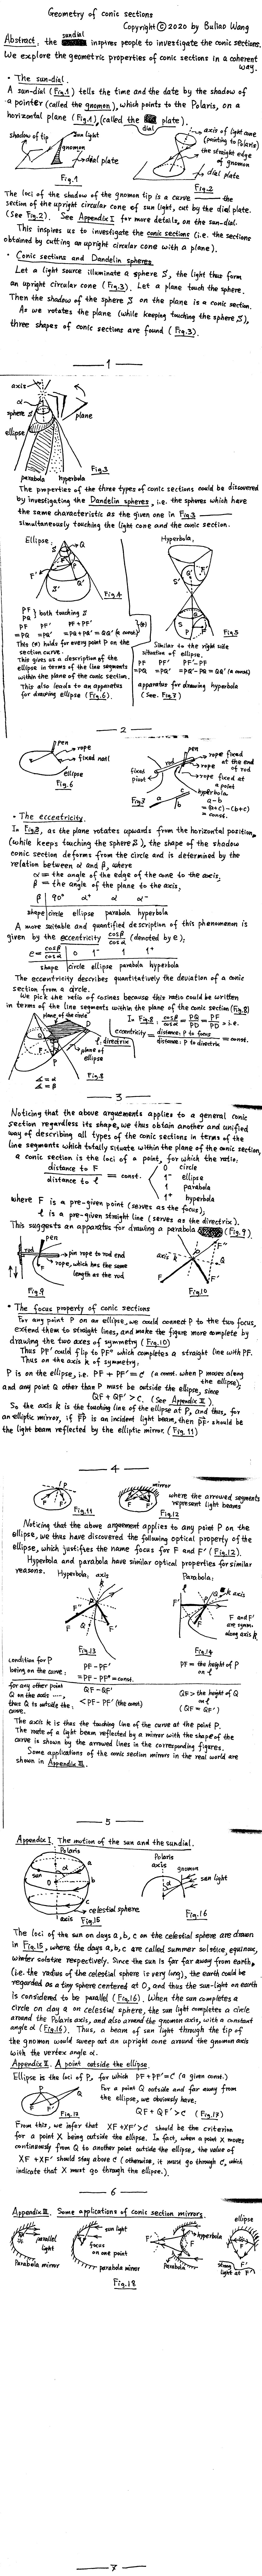 Geometry of conic sections
Copyright © 2020 by Buliao Wang
Abstract: the sundial inspires people to investigate the conic sections.
We explore the geometric properties of conic sections in a coherent way.
• The sun-dial.
A sun-dial (Fig.1) tells the time and the date by the shadow of
a pointer (called the gnomon), which points to the Polaris, on a
horizontal plane (Fig.1), (called the dial plate).
shadow of tip
sun light
gnomon
dial plate
Fig.1
axis of light cone
(pointing to Polaris)
the straight edge
of gnomon
dial plate
Fig.2
The loci of the shadow of the gnomon tip is a curve — the
section of the upright circular cone of sun light, cut by the dial plate.
(See Fig.2). See Appendix I for more details, on the sun-dial.
This inspires us to investigate the conic sections (i.e. the sections
obtained by cutting an upright circular cone with a plane).
• Conic sections and Dandelin spheres
Let a light source illuminate a sphere S, the light thus form
an upright circular cone (Fig.3). Let a plane touch the sphere.
Then the shadow of the sphere S on the plane is a conic section.
As we rotates the plane (while keeping touching the sphere S),
three shapes of conic sections are found (Fig.3).
1
axis
α
sphere S
plane
ellipse
parabola hyperbola
Fig.3
The properties of the three types of conic sections could be discovered
by investigating the Dandelin spheres, i.e. the spheres which have
the same characteristic as the given one in Fig.3 —
simultaneously touching the light cone and the conic section.
Ellipse:
Fig.4
Hyperbola:
Fig.5
PF
PQ } both touching S
PF PF' PF + PF'
=PQ =PQ' =PQ+PQ' =QQ' (a const)
This (*) holds for every point P on the
section curve.
This gives us a description of the
ellipse in terms of the line segments
within the plane of the conic section.
This also leads to an apparatus
for drawing ellipse (Fig.6).
Similar to the right side
situation of ellipse.
PF PF' PF'-PF
=PQ =PQ' =PQ'-PQ = QQ' (a const)
apparatus for drawing hyperbola
(See Fig.7)
2
pen
rope
fixed nail
ellipse
Fig.6
pen
rope fixed
at the end
of rod
rod
rope
fixed
point
rope fixed at
a point
hyperbola
a-b
=(a+c)-(b+c)
= const.
Fig.7
• The eccentricity.
In Fig.3, as the plane rotates upwards from the horizontal position,
(while keeps touching the sphere S), the shape of the shadow
conic section deforms from the circle and is determined by the
relation between α and β, where
α = the angle of the edge of the cone to the axis;
β = the angle of the plane to the axis,
β 90° α⁺ α α⁻
shape circle ellipse parabola hyperbola
A more suitable and quantified description of this phenomenon is
given by the eccentricity cosβ/cosα (denoted by e);
e = cosβ/cosα 0 1⁻ 1 1⁺
shape circle ellipse parabola hyperbola
The eccentricity describes quantitatively the deviation of a conic
section from a circle.
We pick the ratio of cosines because this ratio could be written
in terms of the line segments within the plane of the conic section (Fig.8)
plane of the circle
l, directrix
plane of
ellipse
∡ = α
∡ = β
Fig.8
In Fig.8 cosβ/cosα = PQ/PD = PF/PD, i.e.
eccentricity = distance: P to focus / distance: P to directrix = const.
3
Noticing that the above arguements applies to a general conic
section regardless its shape, we thus obtain another and unified
way of describing all types of the conic sections in terms of the
line segments which totally situate within the plane of the conic section,
a conic section is the loci of a point, for which the ratio,
distance to F / distance to l = const.
0 circle
1⁻ ellipse
1 parabola
1⁺ hyperbola
where F is a pre-given point (serves as the focus),
l is a pre-given straight line (serves as the directrix).
This suggests an apparatus for drawing a parabola (Fig.9)
pen
rod
pin rope to rod end
rope, which has the same
length as the rod
Fig.9
axis k
Fig.10
• The focus property of conic sections
For any point P on an ellipse, we could connect P to the two focus,
extend them to straight lines, and make the figure more complete by
drawing the two axes of symmetry (Fig.10)
Thus PF' could flip to PF'' which completes a straight line with PF.
Thus on the axis k of symmetry:
P is on the ellipse, i.e. PF + PF' = c (a const. when P moves along
the ellipse);
and any point Q other than P must be outside the ellipse, since
QF + QF' > c. (See Appendix II).
So the axis k is the touching line of the ellipse at P, and thus, for
an elliptic mirror, if FP is an incident light beam, then PF' should be
the light beam reflected by the elliptic mirror. (Fig.11)
4
Fig.11
mirror
Fig.12
where the arrowed segments
represent light beams
Noticing that the above arguement applies to any point P on the
ellipse, we thus have discovered the following optical property of the
ellipse, which justifies the name focus for F and F' (Fig.12).
Hyperbola and parabola have similar optical properties for similar
reasons.
Hyperbola:
axis k
Fig.13
Parabola:
k axis
F and F'
are symm.
along axis k
Fig.14
condition for P
being on the curve:
PF - PF'
= PF - PF'' = const.
PF = the height of P
on l
for any other point
Q on the axis ....,
thus Q is outside the
curve.
QF - QF'
< PF - PF' (the const)
QF > the height of Q
on l
(QF = QF')
The axis k is thus the touching line of the curve at the point P.
The route of a light beam reflected by a mirror with the shape of the
curve is shown by the arrowed lines in the corresponding figures.
Some applications of the conic section mirrors in the real world are
shown in Appendix III.
5
Appendix I. The motion of the sun and the sundial.
Polaris
sun
celestial sphere
axis
Fig.15
Polaris
axis
gnomon
sun light
Fig.16
The loci of the sun on days a, b, c on the celestial sphere are drawn
in Fig.15, where the days a, b, c are called summer solstice, equinox,
winter solstice respectively. Since the sun is far far away from earth,
(i.e. the radius of the celestial sphere is very long), the earth could be
regarded as a tiny sphere centered at O, and thus the sun-light on earth
is considered to be parallel (Fig.16). When the sun completes a
circle on day a on celestial sphere, the sun light completes a circle
around the Polaris axis, and also around the gnomon axis, with a constant
angle α (Fig.16). Thus, a beam of sun light through the tip of
the gnomon would sweep out an upright cone around the gnomon axis
with the vertex angle α.
Appendix II. A point outside the ellipse.
Ellipse is the loci of P, for which PF + PF' = c (a given const.)
Fig.17
For a point Q outside and far away from
the ellipse, we obviously have,
QF + QF' > c (Fig.17)
From this, we infer that XF + XF' > c should be the criterion
for a point X being outside the ellipse. In fact, when a point X moves
continuously from Q to another point outside the ellipse, the value of
XF + XF' should stay above c (otherwise, it must go through c, which
indicate that X must go through the ellipse.).
6
Appendix III. Some applications of conic section mirrors.
parallel
light
Parabola mirror
sun light
focus
on one point
parabola mirror
hyperbola
Parabola
ellipse
strong
light at F'
Fig.18
7